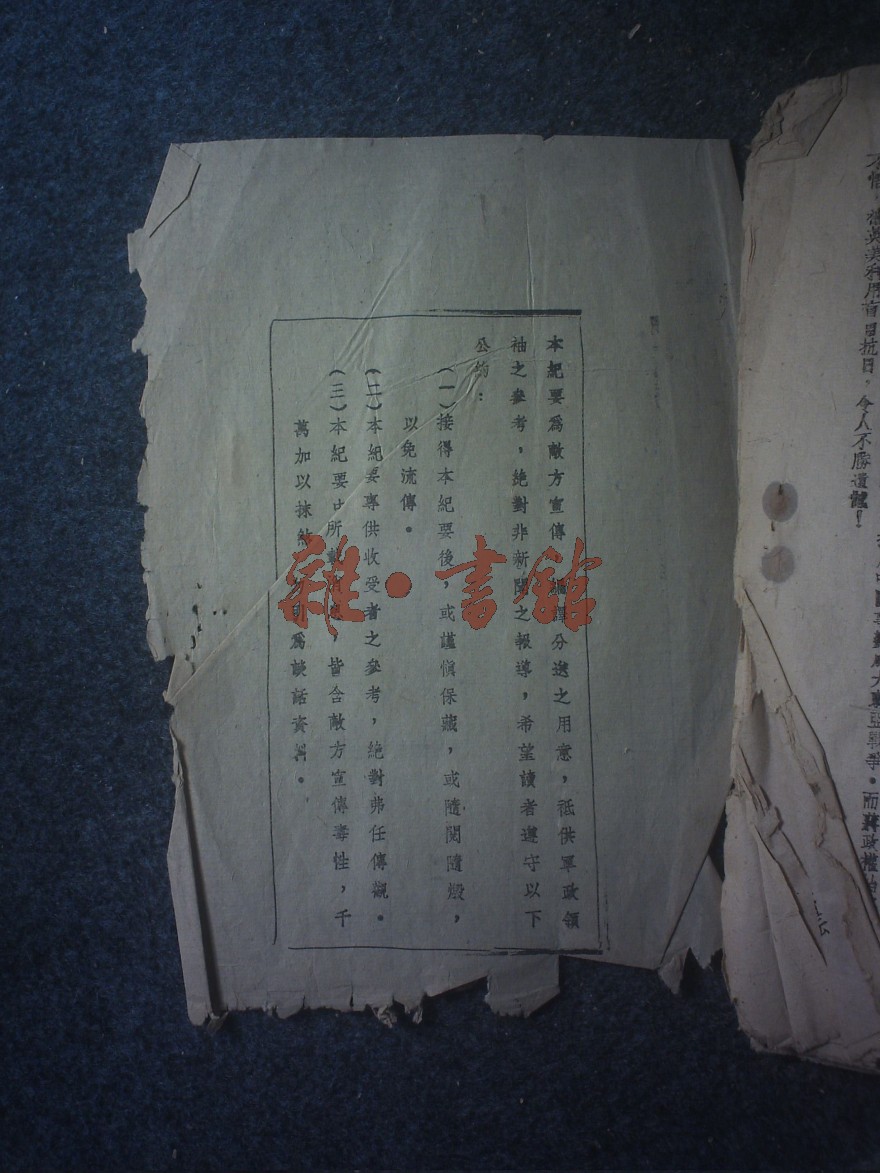 不
被英美利用盲目抗日，令人不勝遺憾！
大東亞戰爭。而蔣政權
本紀要為敵方宣傳 編譯分送之用意，祇供軍政領
袖之參考，絕對非新聞之報導，希望讀者遵守以下
公約：
（一）接得本紀要後，或謹慎保藏，或隨閱隨燬，
以免流傳。
（二）本紀要專供收受者之參考，絕對弗任傳觀。
（三）本紀要中所 ，皆含敵方宣傳毒性，千
萬加以抹 為談話資料。
雜·書館